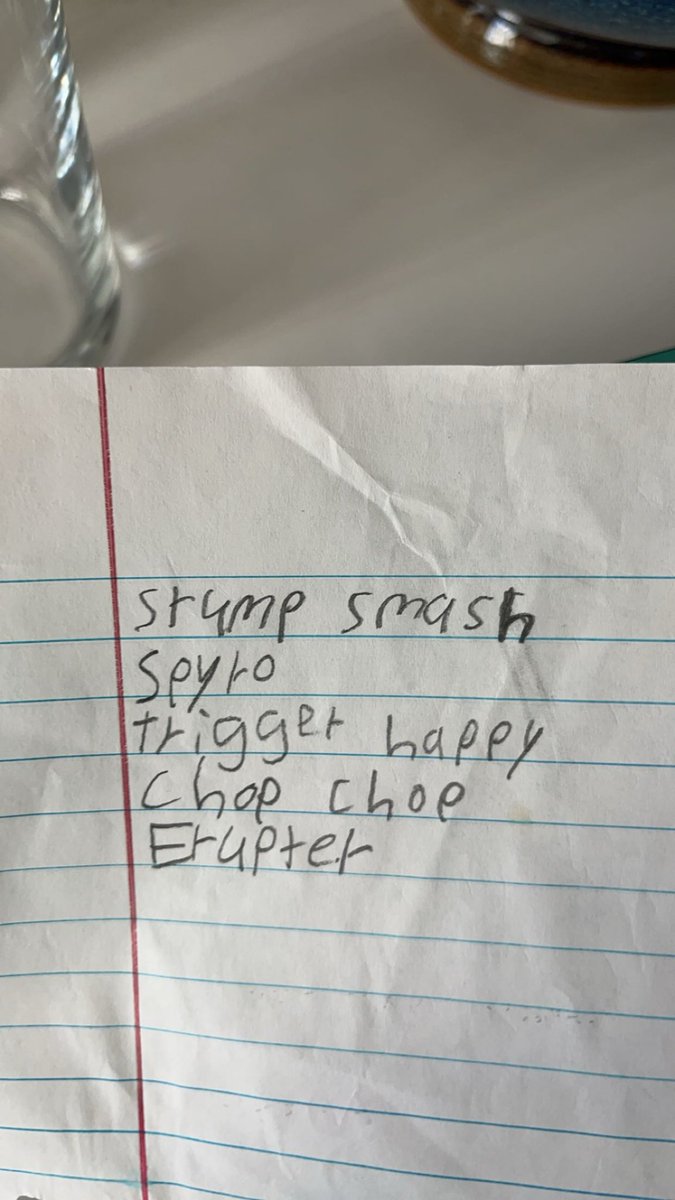 stump smash
Spyro
trigger happy
Chop chop
Erupter